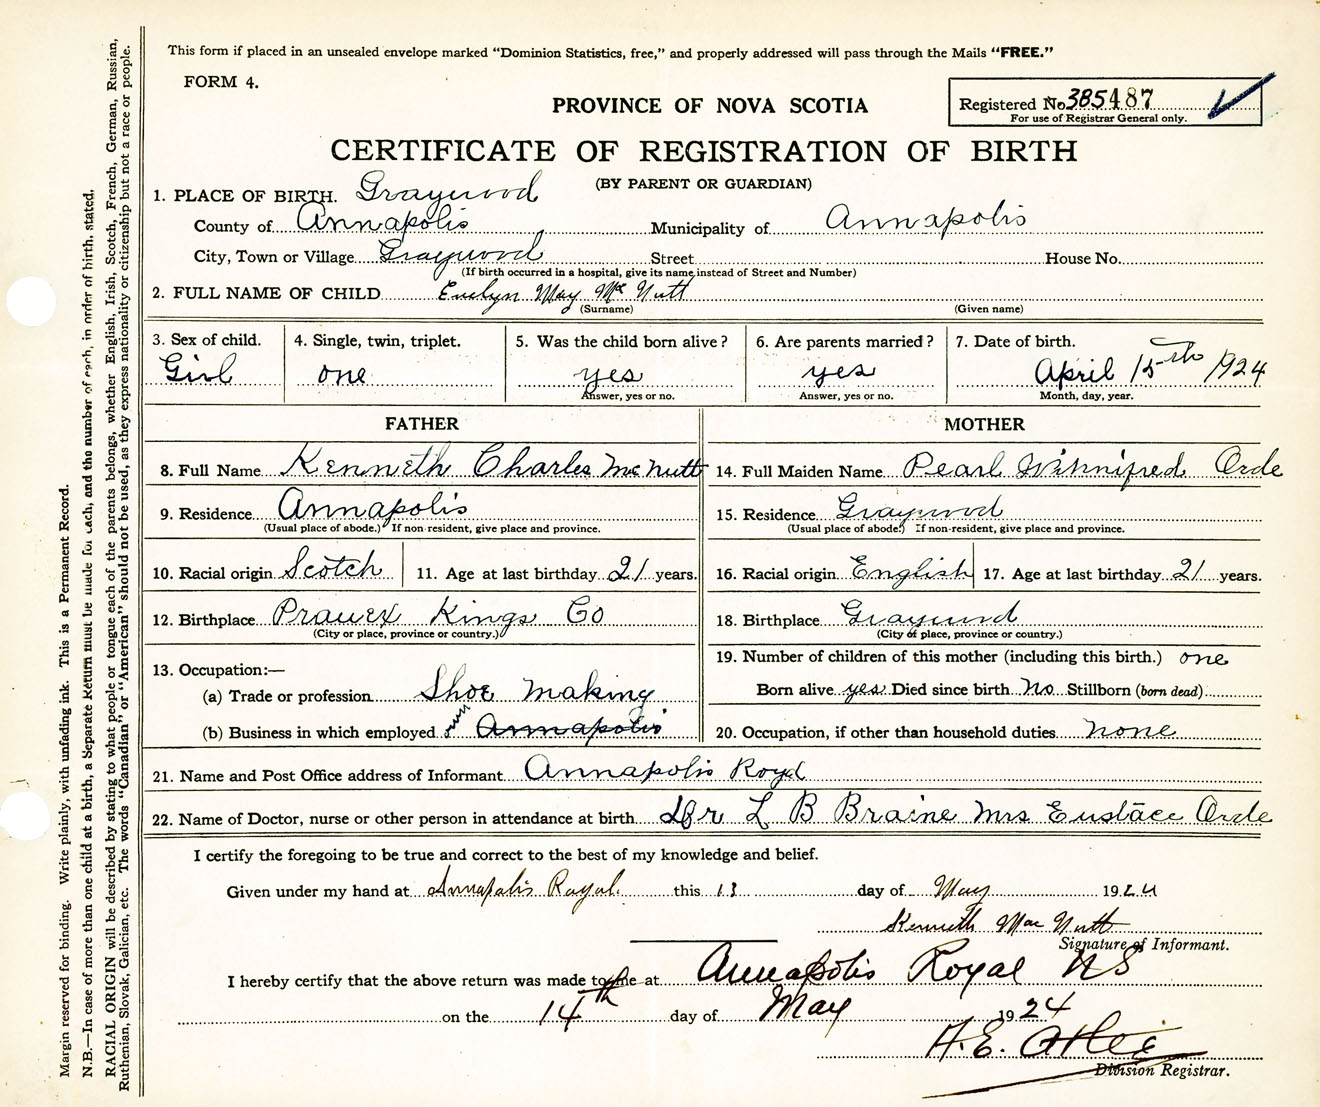 This form if placed in an unsealed envelope marked "Dominion Statistics, free," and properly addressed will pass through the Mails "FREE."
FORM 4.
PROVINCE OF NOVA SCOTIA
Registered No. 385487
For use of Registrar General only.
CERTIFICATE OF REGISTRATION OF BIRTH
(BY PARENT OR GUARDIAN)
1. PLACE OF BIRTH. Graywood
County of Annapolis Municipality of Annapolis
City, Town or Village Graywood Street House No.
(If birth occurred in a hospital, give its name instead of Street and Number)
2. FULL NAME OF CHILD Evelyn May Mc Nutt
(Surname) (Given name)
3. Sex of child. 4. Single, twin, triplet. 5. Was the child born alive? 6. Are parents married? 7. Date of birth.
Girl one yes yes April 15th 1924
Answer, yes or no. Answer, yes or no. Month, day, year.
FATHER MOTHER
8. Full Name Kenneth Charles McNutt 14. Full Maiden Name Pearl Winnifred Orde
9. Residence Annapolis 15. Residence Graywood
(Usual place of abode.) If non-resident, give place and province. (Usual place of abode.) If non-resident, give place and province.
10. Racial origin Scotch 11. Age at last birthday 21 years. 16. Racial origin English 17. Age at last birthday 21 years.
12. Birthplace Kings Co 18. Birthplace Graywood
(City or place, province or country.) (City or place, province or country.)
13. Occupation:— 19. Number of children of this mother (including this birth.) one
(a) Trade or profession Shoe making Born alive yes Died since birth No Stillborn (born dead)
(b) Business in which employed Annapolis 20. Occupation, if other than household duties none
21. Name and Post Office address of Informant Annapolis Royal
22. Name of Doctor, nurse or other person in attendance at birth Dr L B Braine Mrs Eustace Orde
I certify the foregoing to be true and correct to the best of my knowledge and belief.
Given under my hand at Annapolis Royal. this 13 day of May 1924
Kenneth Mac Nutt
Signature of Informant.
I hereby certify that the above return was made to me at Annapolis Royal NS
on the 14th day of May 1924
A. E.
Division Registrar.
Margin reserved for binding. Write plainly, with unfading ink. This is a Permanent Record.
N.B.—In case of more than one child at a birth, a Separate Return must be made for each, and the number of each, in order of birth, stated.
RACIAL ORIGIN will be described by stating to what people or tongue each of the parents belongs, whether English, Irish, Scotch, French, German, Russian,
Ruthenian, Slovak, Galician, etc. The words "Canadian" or "American" should not be used, as they express nationality or citizenship but not a race or people.